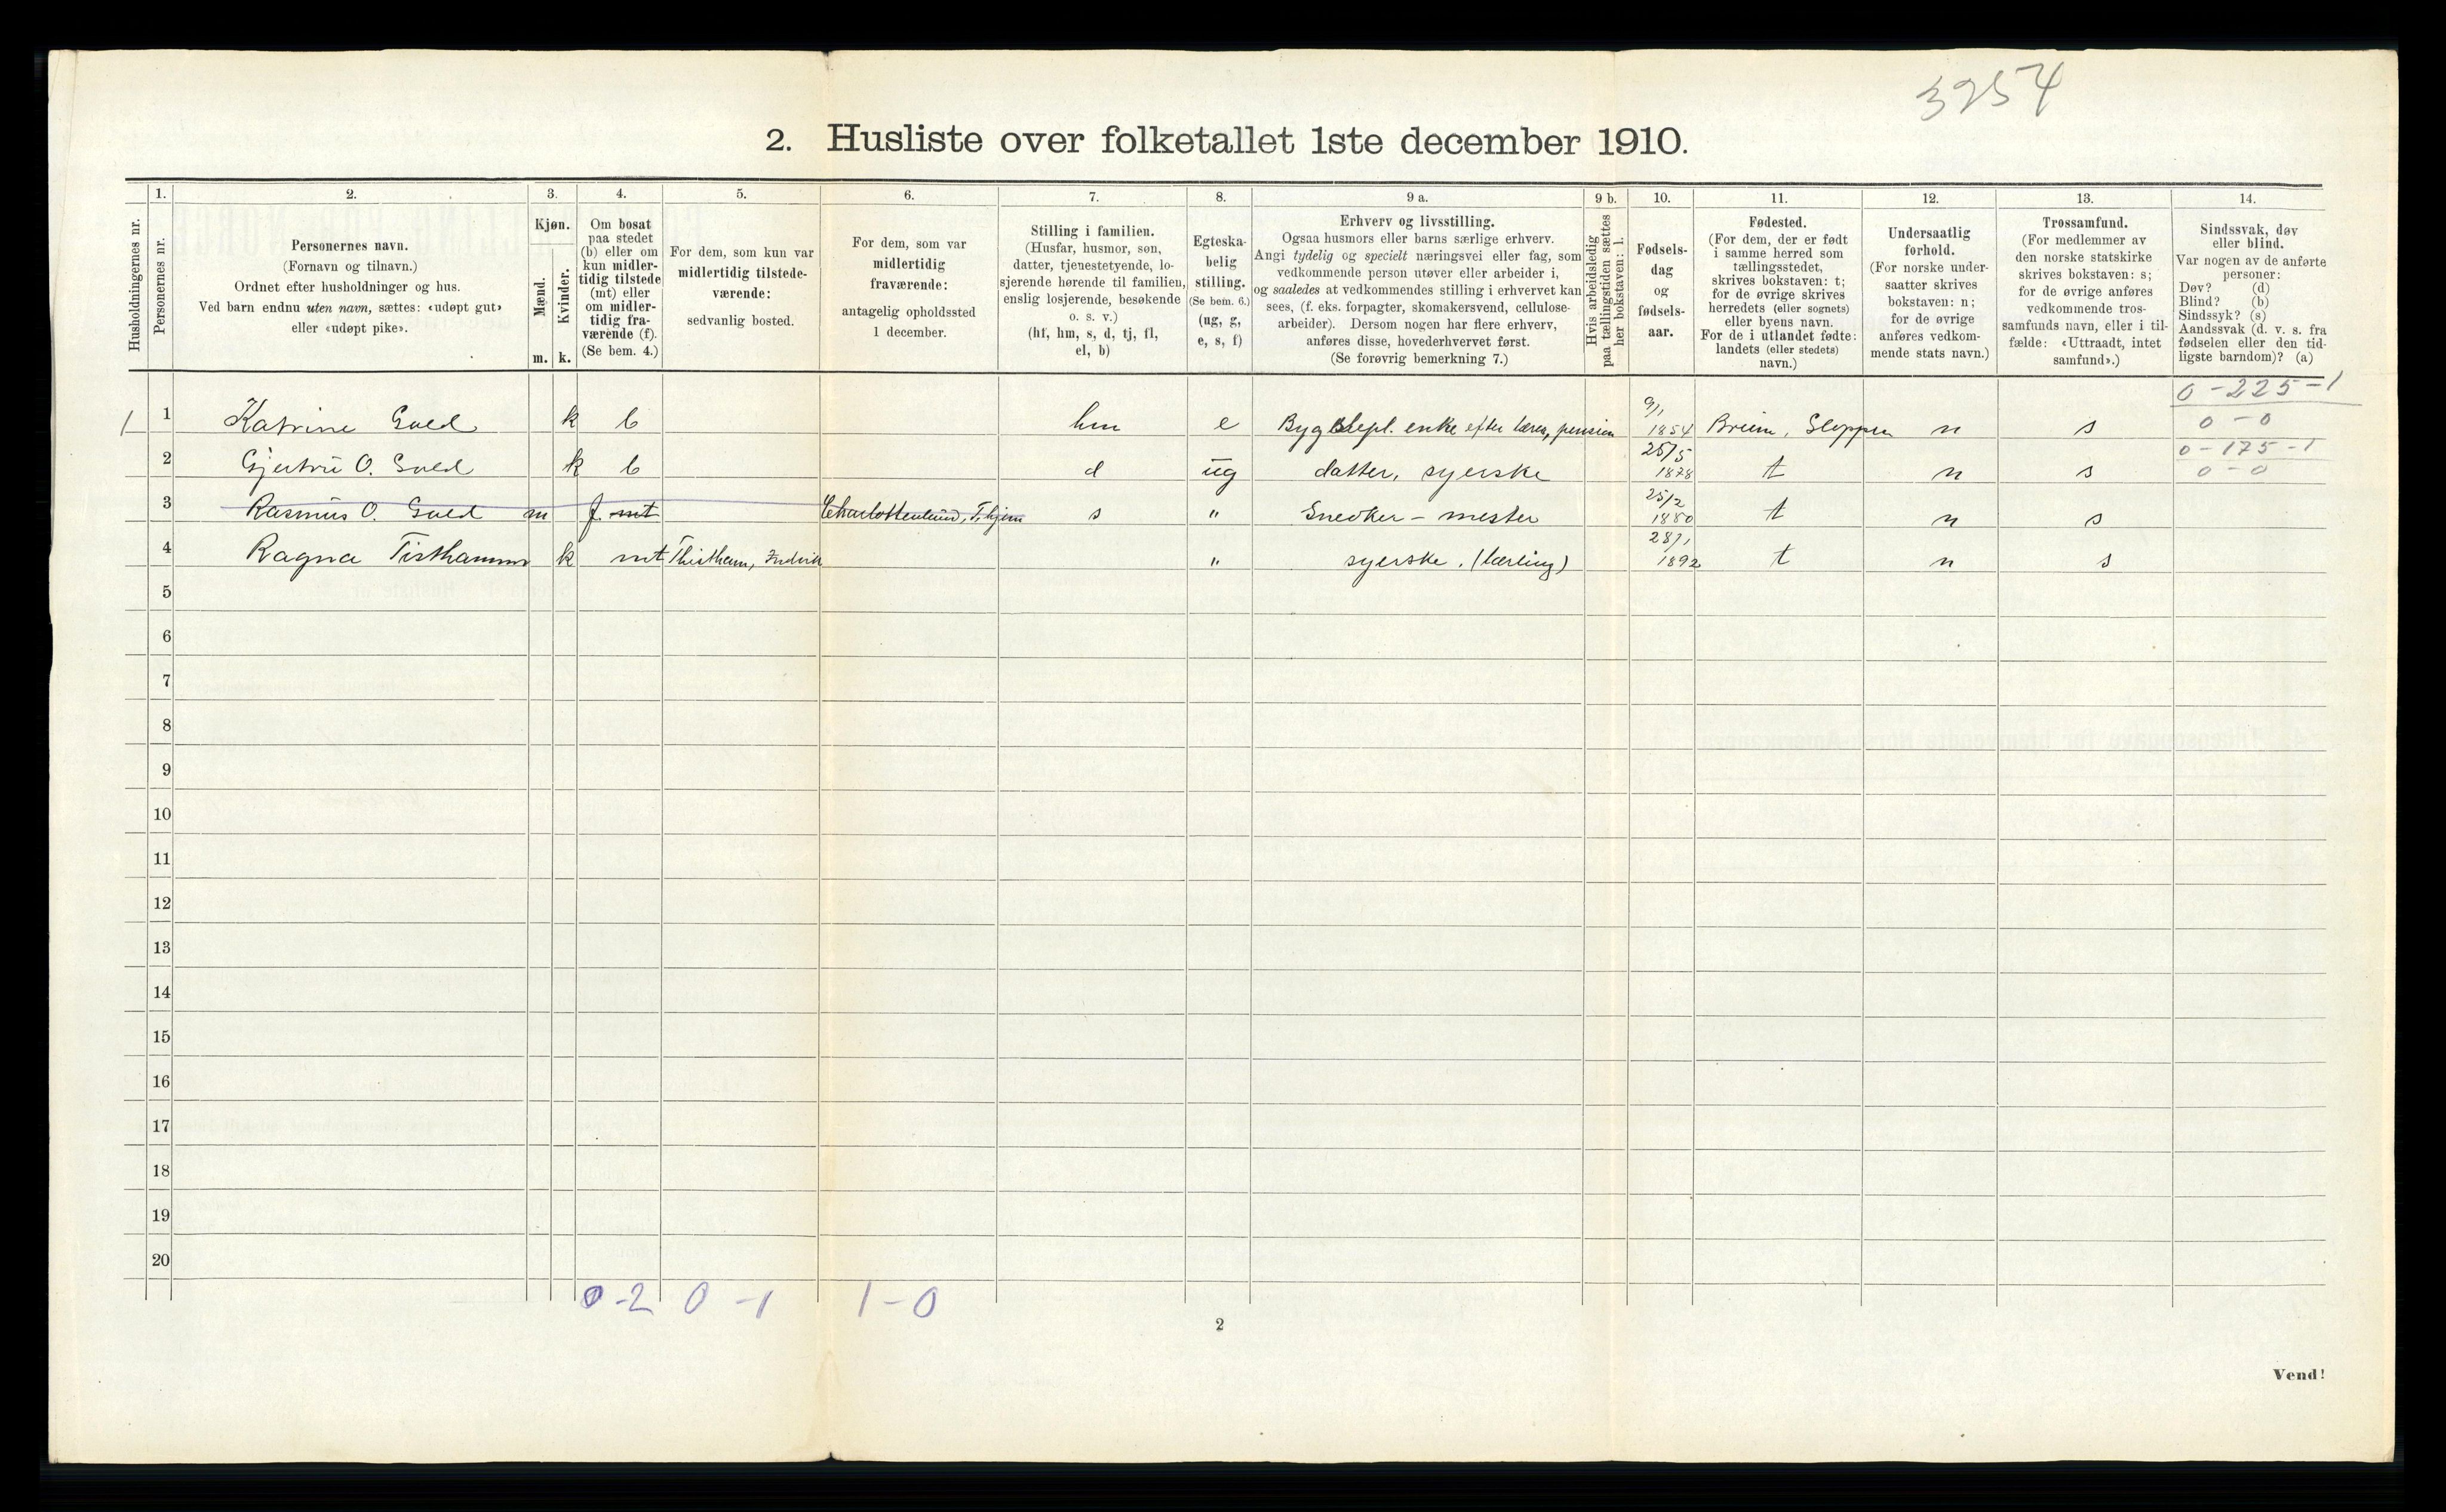 3254
2. Husliste over folketallet 1ste december 1910.
1. 2. 3. 4. 5. 6. 7. 8. 9 a. 9 b. 10. 11. 12. 13. 14.
Husholdningernes nr.
Personernes nr.
Personernes navn.
(Fornavn og tilnavn.)
Ordnet efter husholdninger og hus.
Ved barn endnu uten navn, sættes: «udøpt gut»
eller «udøpt pike».
Kjøn.
Mænd.
Kvinder.
m. k.
Om bosat
paa stedet
(b) eller om
kun midler-
tidig tilstede
(mt) eller
om midler-
tidig fra-
værende (f).
(Se bem. 4.)
For dem, som kun var
midlertidig tilstede-
værende:
sedvanlig bosted.
For dem, som var
midlertidig
fraværende:
antagelig opholdssted
1 december.
Stilling i familien.
(Husfar, husmor, søn,
datter, tjenestetyende, lo-
sjerende hørende til familien,
enslig losjerende, besøkende
o. s. v.)
(hf, hm, s, d, tj, fl,
el, b)
Egteska-
belig
stilling.
(Se bem. 6.)
(ug, g,
e, s, f)
Erhverv og livsstilling.
Ogsaa husmors eller barns særlige erhverv.
Angi tydelig og specielt næringsvei eller fag, som
vedkommende person utøver eller arbeider i,
og saaledes at vedkommendes stilling i erhvervet kan
sees, (f. eks. forpagter, skomakersvend, cellulose-
arbeider). Dersom nogen har flere erhverv,
anføres disse, hovederhvervet først.
(Se forøvrig bemerkning 7.)
Hvis arbeidsledig
paa tællingstiden sættes
her bokstaven: l.
Fødsels-
dag
og
fødsels-
aar.
Fødested.
(For dem, der er født
i samme herred som
tællingsstedet,
skrives bokstaven: t;
for de øvrige skrives
herredets (eller sognets)
eller byens navn.
For de i utlandet fødte:
landets (eller stedets)
navn.)
Undersaatlig
forhold.
(For norske under-
saatter skrives
bokstaven: n;
for de øvrige
anføres vedkom-
mende stats navn.)
Trossamfund.
(For medlemmer av
den norske statskirke
skrives bokstaven: s;
for de øvrige anføres
vedkommende tros-
samfunds navn, eller i til-
fælde: «Uttraadt, intet
samfund».)
Sindssvak, døv
eller blind.
Var nogen av de anførte
personer:
Døv? (d)
Blind? (b)
Sindssyk? (s)
Aandssvak (d. v. s. fra
fødselen eller den tid-
ligste barndom)? (a)
0-225-1
1 1 Katrine Gved k b hm e enke efter lærer, pension 9/1 1854 Breim, Gloppen n s 0-0
2 Gjertru O. Gved k b d ug datter, syerske 25/5 1878 t n s 0-175-1
0-0
3 Rasmus O. Gved m f mt Charlottenlund, T.hjem s " Snedker-mester 25/2 1880 t n s
4 Ragna Tisthamm k mt Thistham, Indvik " syerske. (lærling) 28/1 1892 t n s
5
6
7
8
9
10
11
12
13
14
15
16
17
18
19
20
0-2 0-1 1-0
2
Vend!